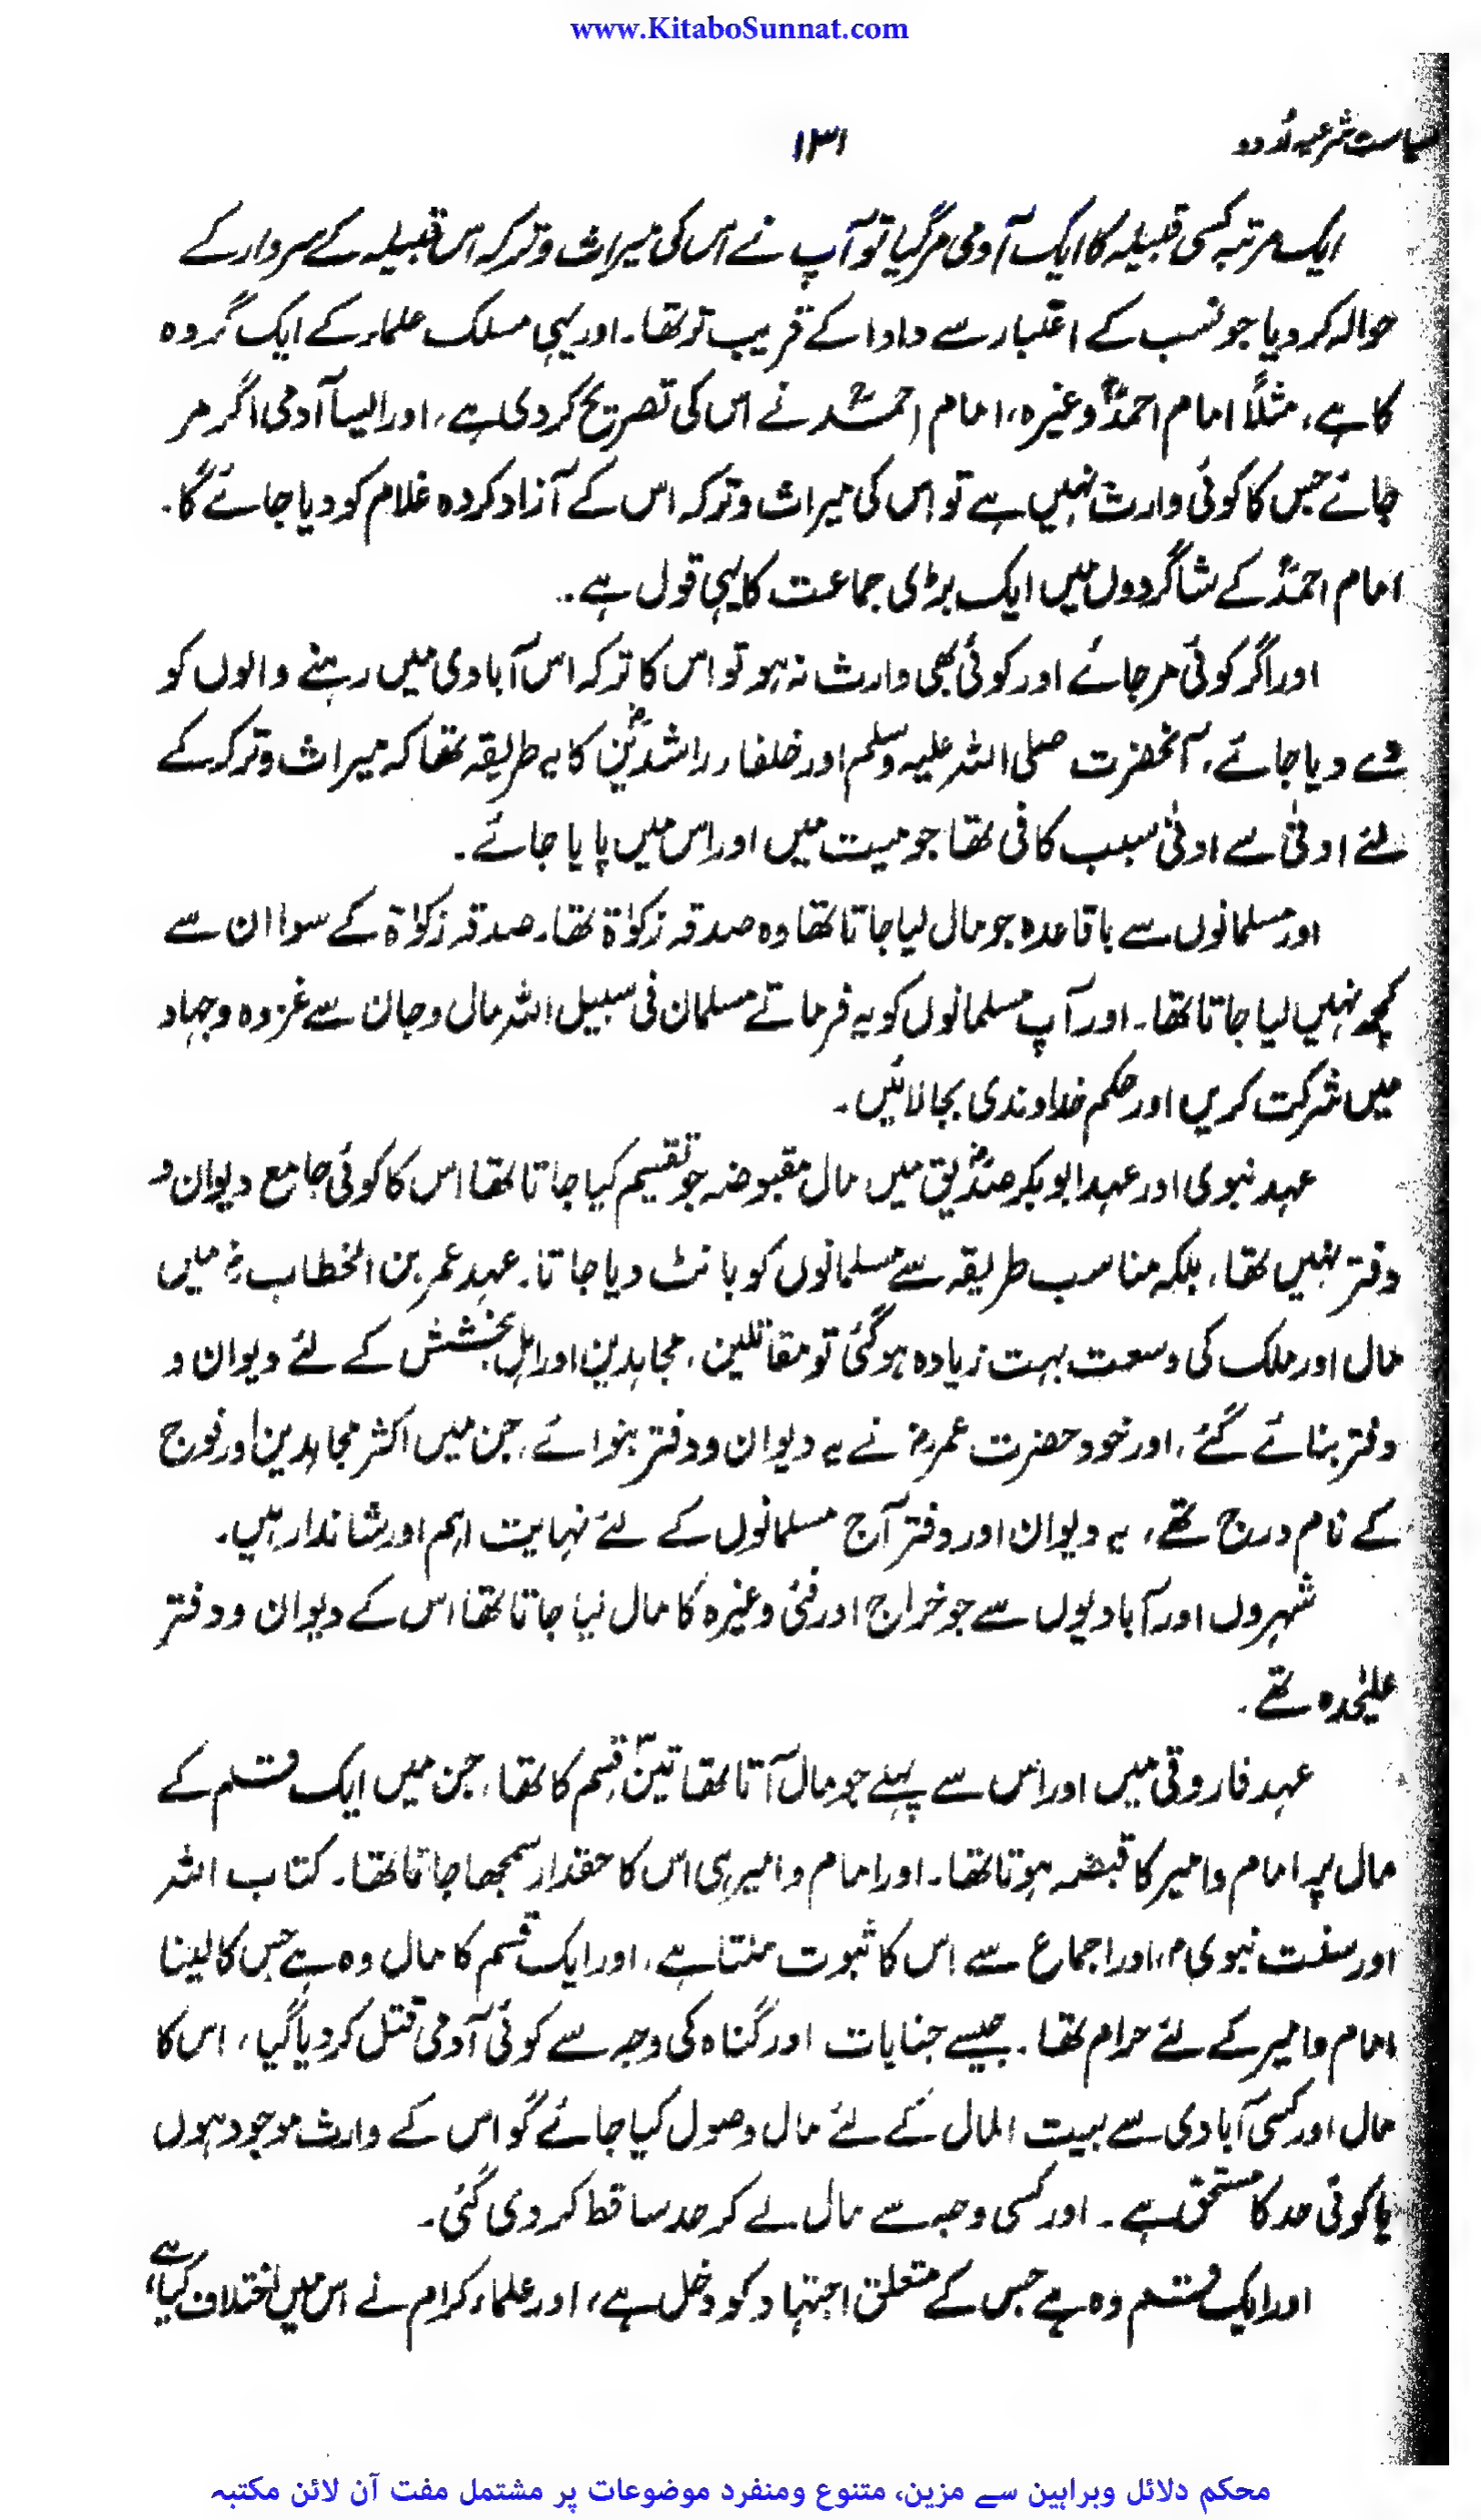 www.KitaboSunnat.com
سیاست شرعیہ اُردو
۱۳۱
ایک مرتبہ کسی قبیلہ کا ایک آدمی مرگیا تو آپ نے اس کی میراث و ترکہ اس قبیلہ کے سردار کے
حوالہ کر دیا جو نسب کے اعتبار سے دادا کے قریب تر تھا۔ اور یہی مسلک علماء کے ایک گروہ
کا ہے، مثلاً امام احمدؒ وغیرہ، امام احمدؒ نے اس کی تصریح کر دی ہے، اور ایسا آدمی اگر مر
جائے جس کا کوئی وارث نہیں ہے تو اس کی میراث و ترکہ اس کے آزاد کردہ غلام کو دیا جائے گا۔
امام احمدؒ کے شاگردوں میں ایک بڑی جماعت کا یہی قول ہے۔
اور اگر کوئی مر جائے اور کوئی بھی وارث نہ ہو تو اس کا ترکہ اس آبادی میں رہنے والوں کو
دے دیا جائے، آنحضرت صلی اللہ علیہ وسلم اور خلفاء راشدینؓ کا یہ طریقہ تھا کہ میراث و ترکہ کے
لئے ادنیٰ سے ادنیٰ سبب کافی تھا جو میت میں اور اس میں پایا جائے۔
اور مسلمانوں سے باقاعدہ جو مال لیا جاتا تھا وہ صدقہ زکوٰۃ تھا۔ صدقہ زکوٰۃ کے سوا ان سے
کچھ نہیں لیا جاتا تھا۔ اور آپ مسلمانوں کو یہ فرماتے مسلمان فی سبیل اللہ مال و جان سے غزوہ و جہاد
میں شرکت کریں اور حکم خداوندی بجا لائیں۔
عہد نبوی اور عہد ابوبکر صدیقؓ میں مال مقبوضہ جو تقسیم کیا جاتا تھا اس کا کوئی جامع دیوان و
دفتر نہیں تھا، بلکہ مناسب طریقہ سے مسلمانوں کو بانٹ دیا جاتا۔ عہد عمر بن الخطابؓ میں
مال اور ملک کی وسعت بہت زیادہ ہوگئی تو مقاتلین، مجاہدین اور اہل بخشش کے لئے دیوان و
دفتر بنائے گئے، اور خود حضرت عمرؓ نے یہ دیوان و دفتر بنوائے، جن میں اکثر مجاہدین اور فوج
کے نام درج تھے، یہ دیوان اور دفتر آج مسلمانوں کے لئے نہایت اہم اور شاندار ہیں۔
شہروں اور آبادیوں سے جو خراج اور فئ وغیرہ کا مال لیا جاتا تھا اس کے دیوان و دفتر
علیٰحدہ تھے۔
عہد فاروقی میں اور اس سے پہلے جو مال آتا تھا تین۳ قسم کا تھا، جن میں ایک قسم کے
مال پر امام و امیر کا قبضہ ہوتا تھا۔ اور امام و امیر ہی اس کا حقدار سمجھا جاتا تھا۔ کتاب اللہ
اور سنت نبویؐ، اور اجماع سے اس کا ثبوت ملتا ہے، اور ایک قسم کا مال وہ ہے جس کا لینا
امام و امیر کے لئے حرام تھا۔ جیسے جنایات اور گناہ کی وجہ سے کوئی آدمی قتل کر دیا گیا، اس کا
مال اور کسی آبادی سے بیت المال کے لئے مال وصول کیا جائے گو اس کے وارث موجود ہوں
یا کوئی حد کا مستحق ہے۔ اور کسی وجہ سے مال لے کر حد ساقط کر دی گئی۔
اور ایک قسم وہ ہے جس کے متعلق اجتہاد کو دخل ہے، اور علماء کرام نے اس میں اختلاف کیا ہے،
محکم دلائل وبراہین سے مزین، متنوع ومنفرد موضوعات پر مشتمل مفت آن لائن مکتبہ